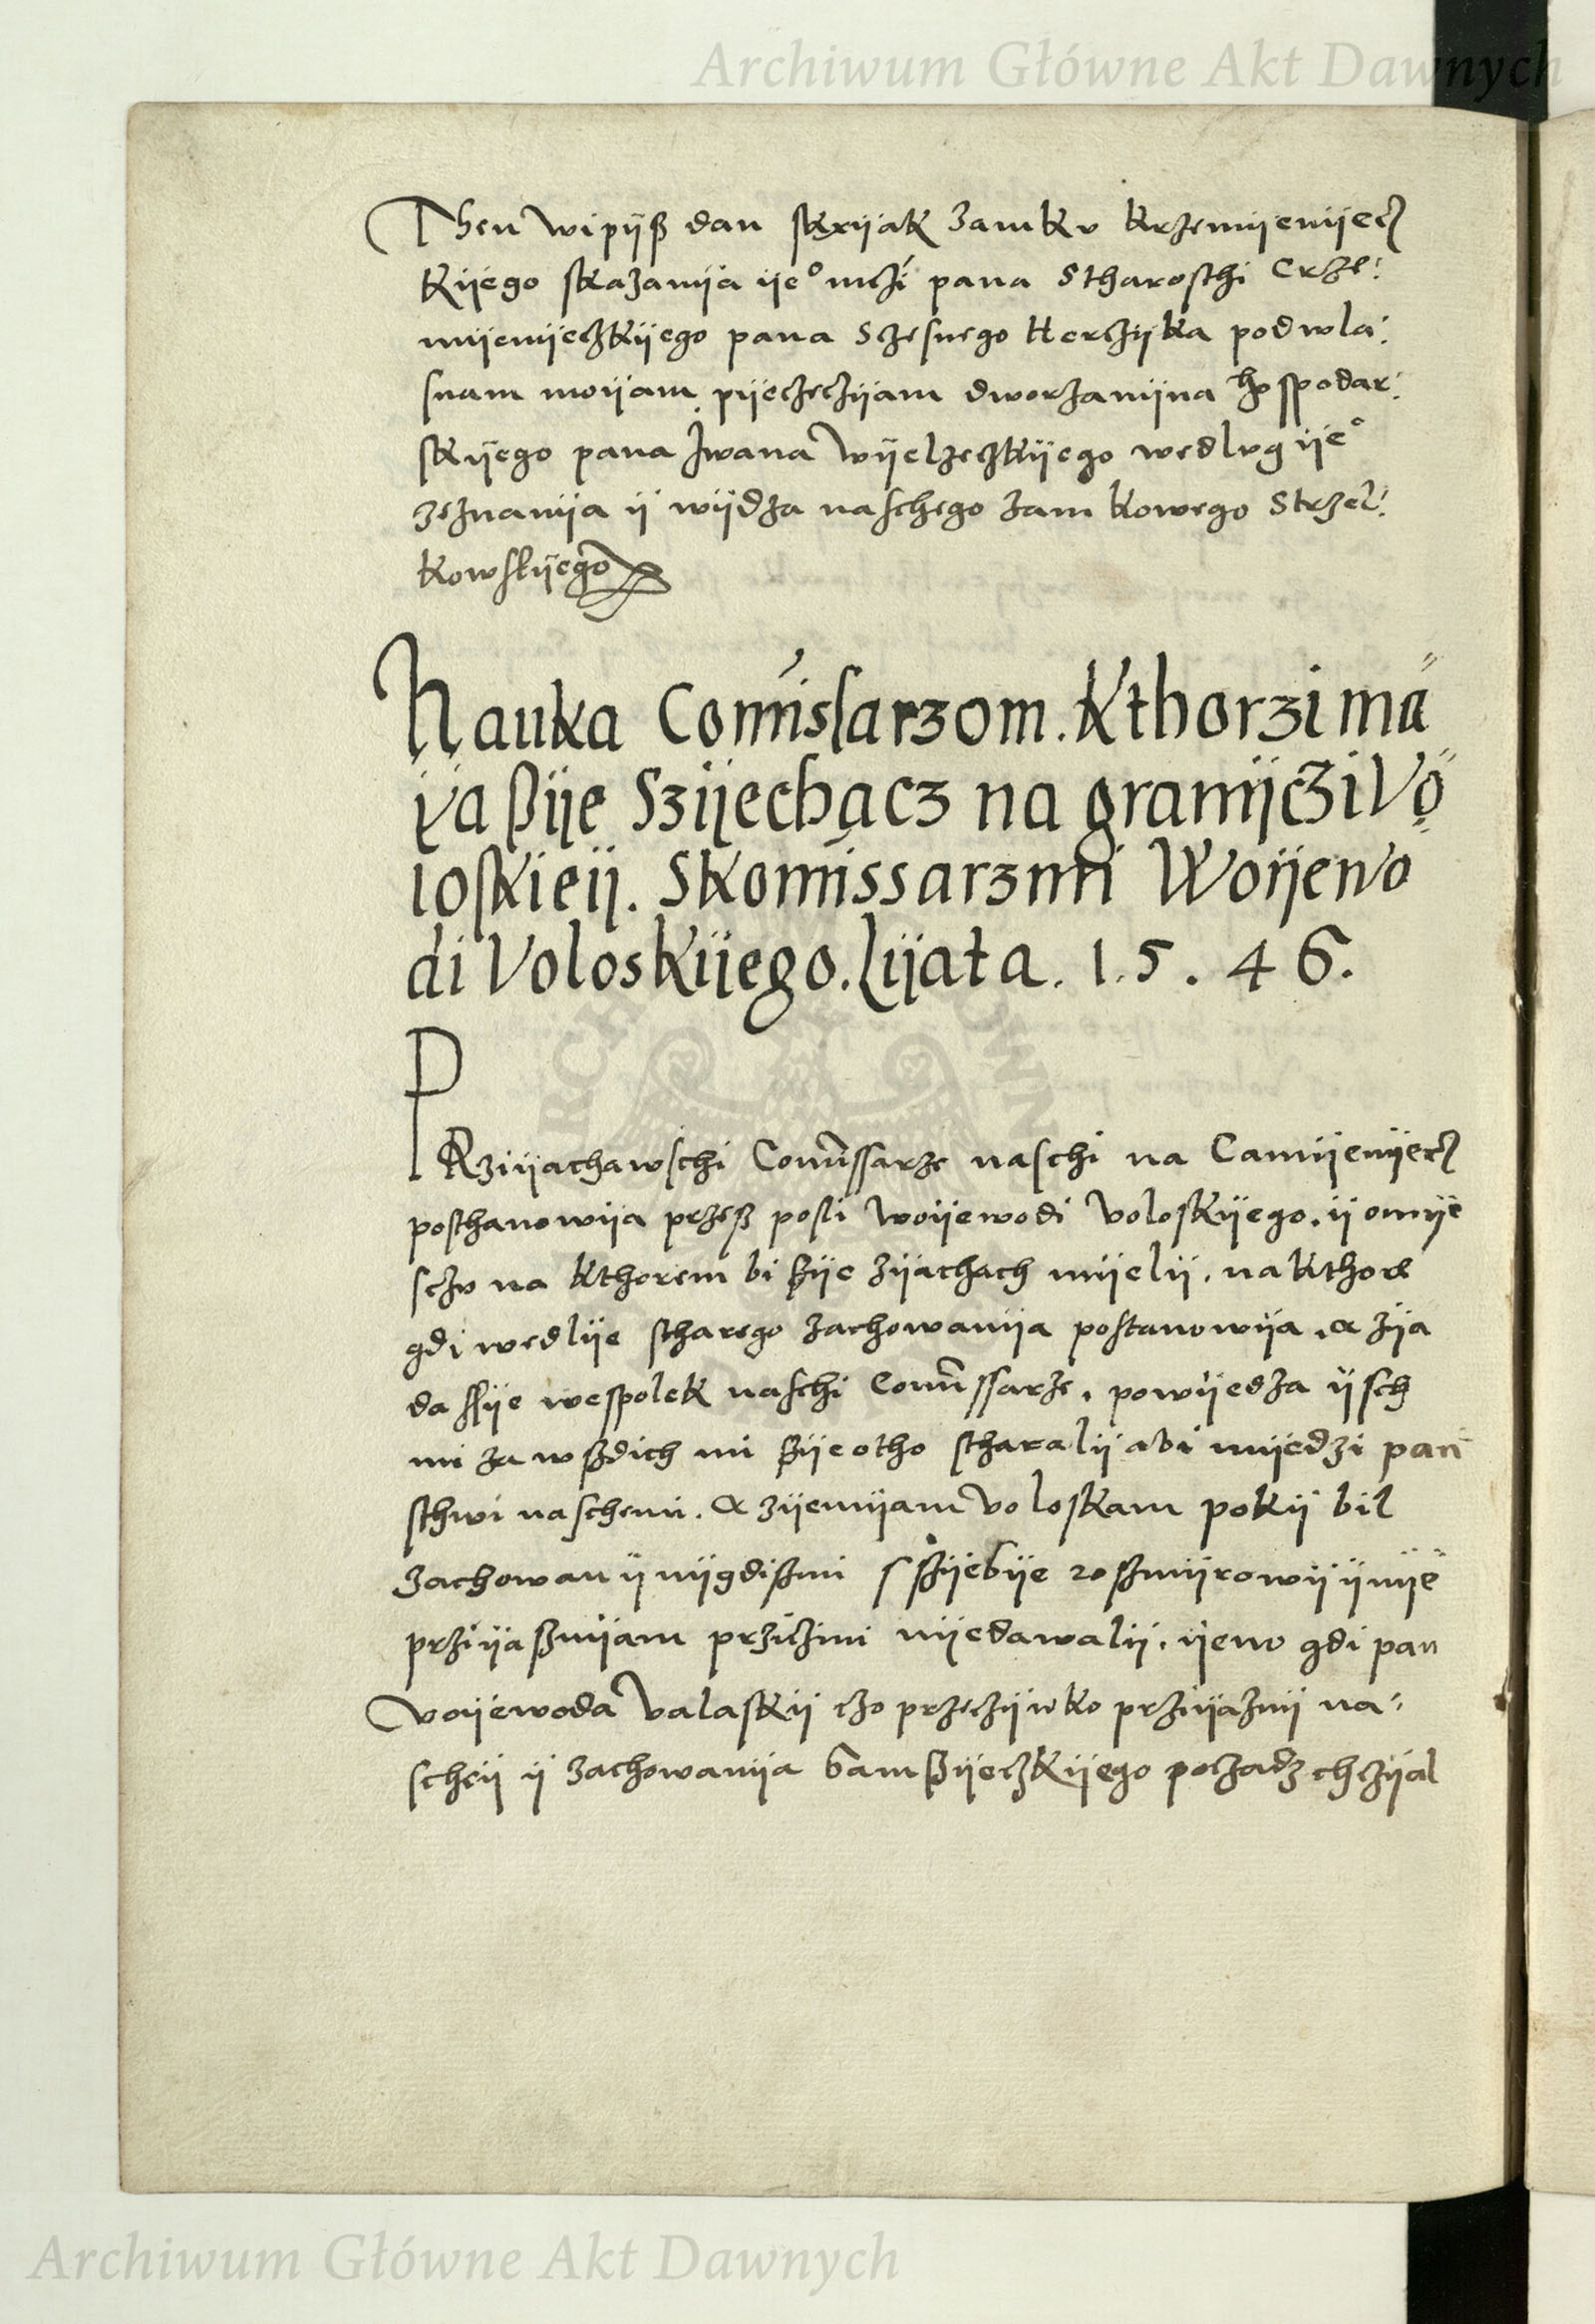 Archiwum Główne Akt Dawnych
Then wipijß dan skxijak zamku krzemijenijecz
kijego skazanija ije° mczi pana Stharosthi Crze:
mijenijeczkijego pana Sczesnego Herczijka pod wla:
snam moijam pijeczeczijam dworzanijna hospodar:
skijego pana Jwana Wijelzeczkijego wedlug ije°
zeznanija ij wijdza naschego zamkowego Strzel:
kowskijego
Nauka Comissarzom. Kthorzi ma
ya ßije Szijechacz na granijczi Vo
loskieij. Skomissarzmi Woijewo
di Voloskijego. Lijata. 1.5.46.
PRzijachawschi Comissarze naschi na Camijenijecz
posthanowija przeß posli woijewodi Voloskijego. ij omije
sczu na kthorem bi ßije zijachach mijelij. na kthore
gdi wedlije stharego zachowanija postanowija. a zija
da ssije wespolek naschi Comissarze. powijedza ijsch
mi zawßdich mi ßije otho stharalij abi mijedzi pan
sthwi naschemi. a zijemijam Voloskam pokij bil
zachowan ij nijgdißmi s ßijebije rosmijrowij ij nije
przijaßnijam prziczini nijedawalij. ijeno gdi pan
Voijewoda Valaskij czo przeczijwko przijaznij na:
scheij ij zachowanija samßijeczkijego poczadz chczijal
Archiwum Główne Akt Dawnych